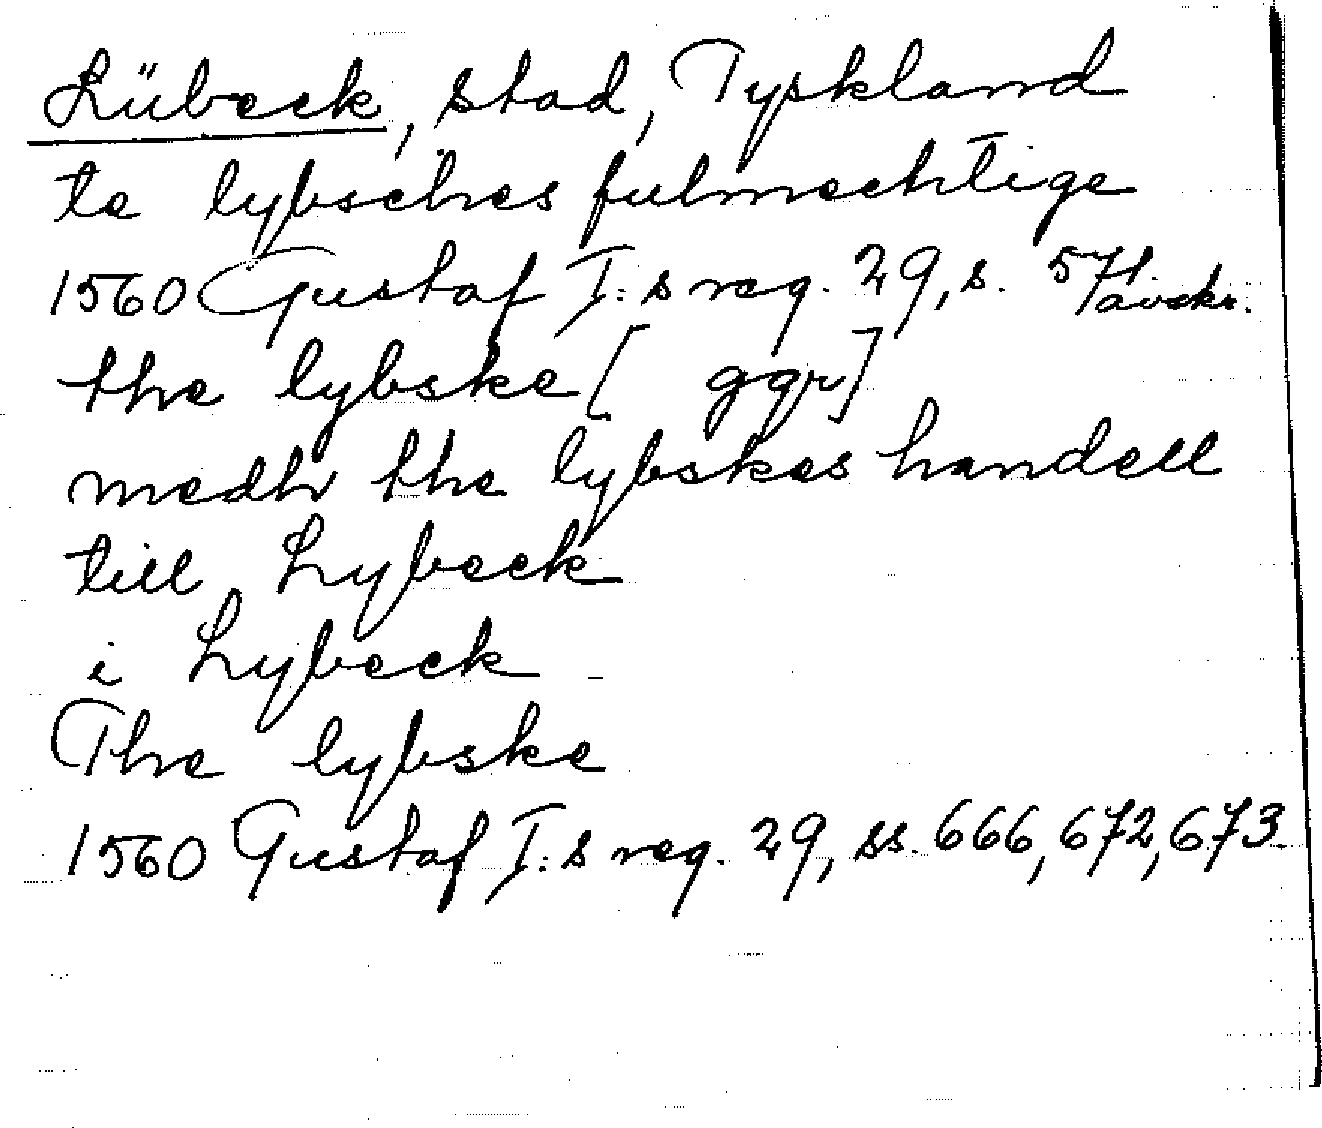 Lübeck, stad, Tyskland
te lybsches fulmechtige
1560 Gustaf I:s reg. 29, s. 571 avskr.
the lybske [ ggr]
medh the lybskes handell
till Lybeck
i Lybeck
The lybske
1560 Gustaf I:s reg. 29, ss. 666, 672, 673